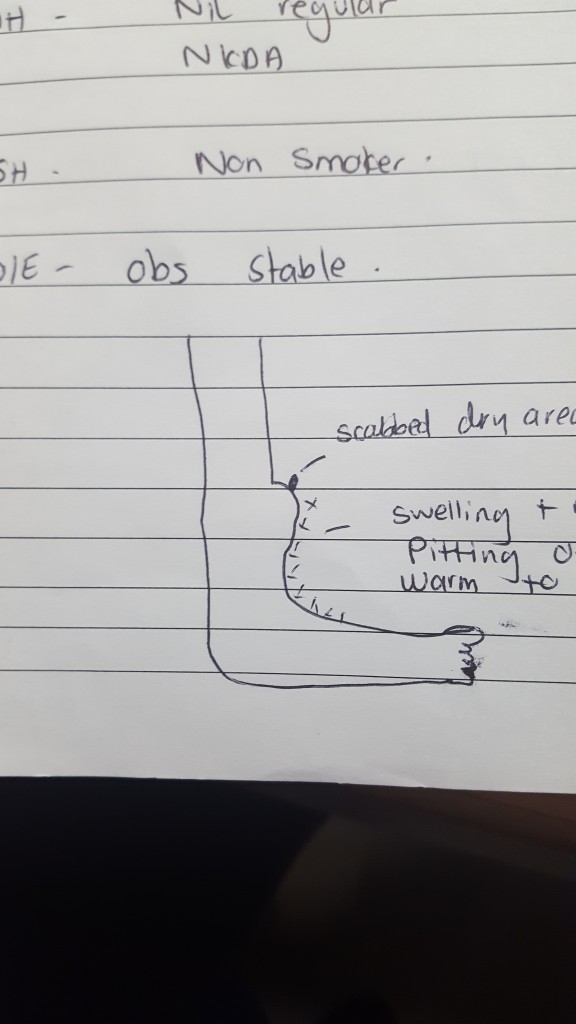 H - Nil regular
NKDA
SH - Non Smoker.
O/E - Obs Stable.
scabbed dry area
swelling +
Pitting
warm to